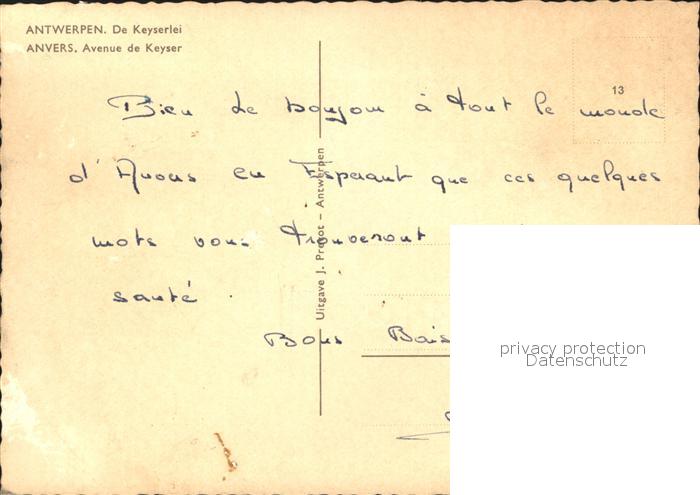 ANTWERPEN. De Keyserlei
ANVERS, Avenue de Keyser
13
Bien le bonjour à tout le monde
d'Anvers en Esperant que ces quelques
mots vous trouveront
santé.
Bons Bais
Uitgave J. Prevot - Antwerpen
privacy protection
Datenschutz